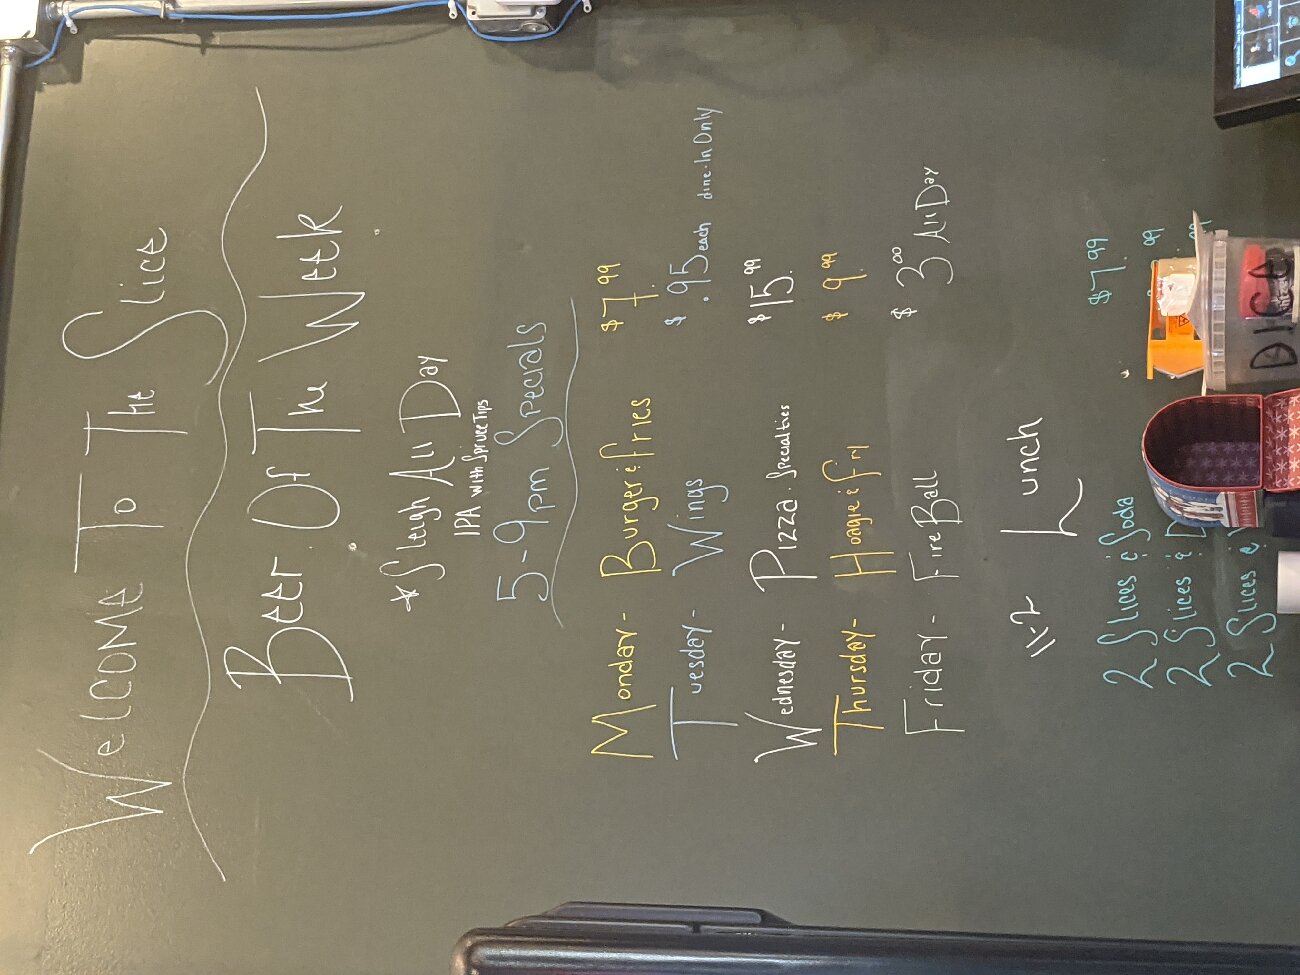 Welcome To The Slice
Beer Of The Week
*Sleigh All Day
IPA with Spruce Tips
5-9pm Specials
Monday- Burger & fries $7.99
Tuesday- Wings $.95 each dine-In Only
Wednesday- Pizza Specialties $15.99
Thursday- Hoagie & fry $9.99
Friday- FireBall $3.00 All Day
11-2 Lunch
2 Slices & Soda $7.99
2 Slices & .99
2 Slices & .99
DICE